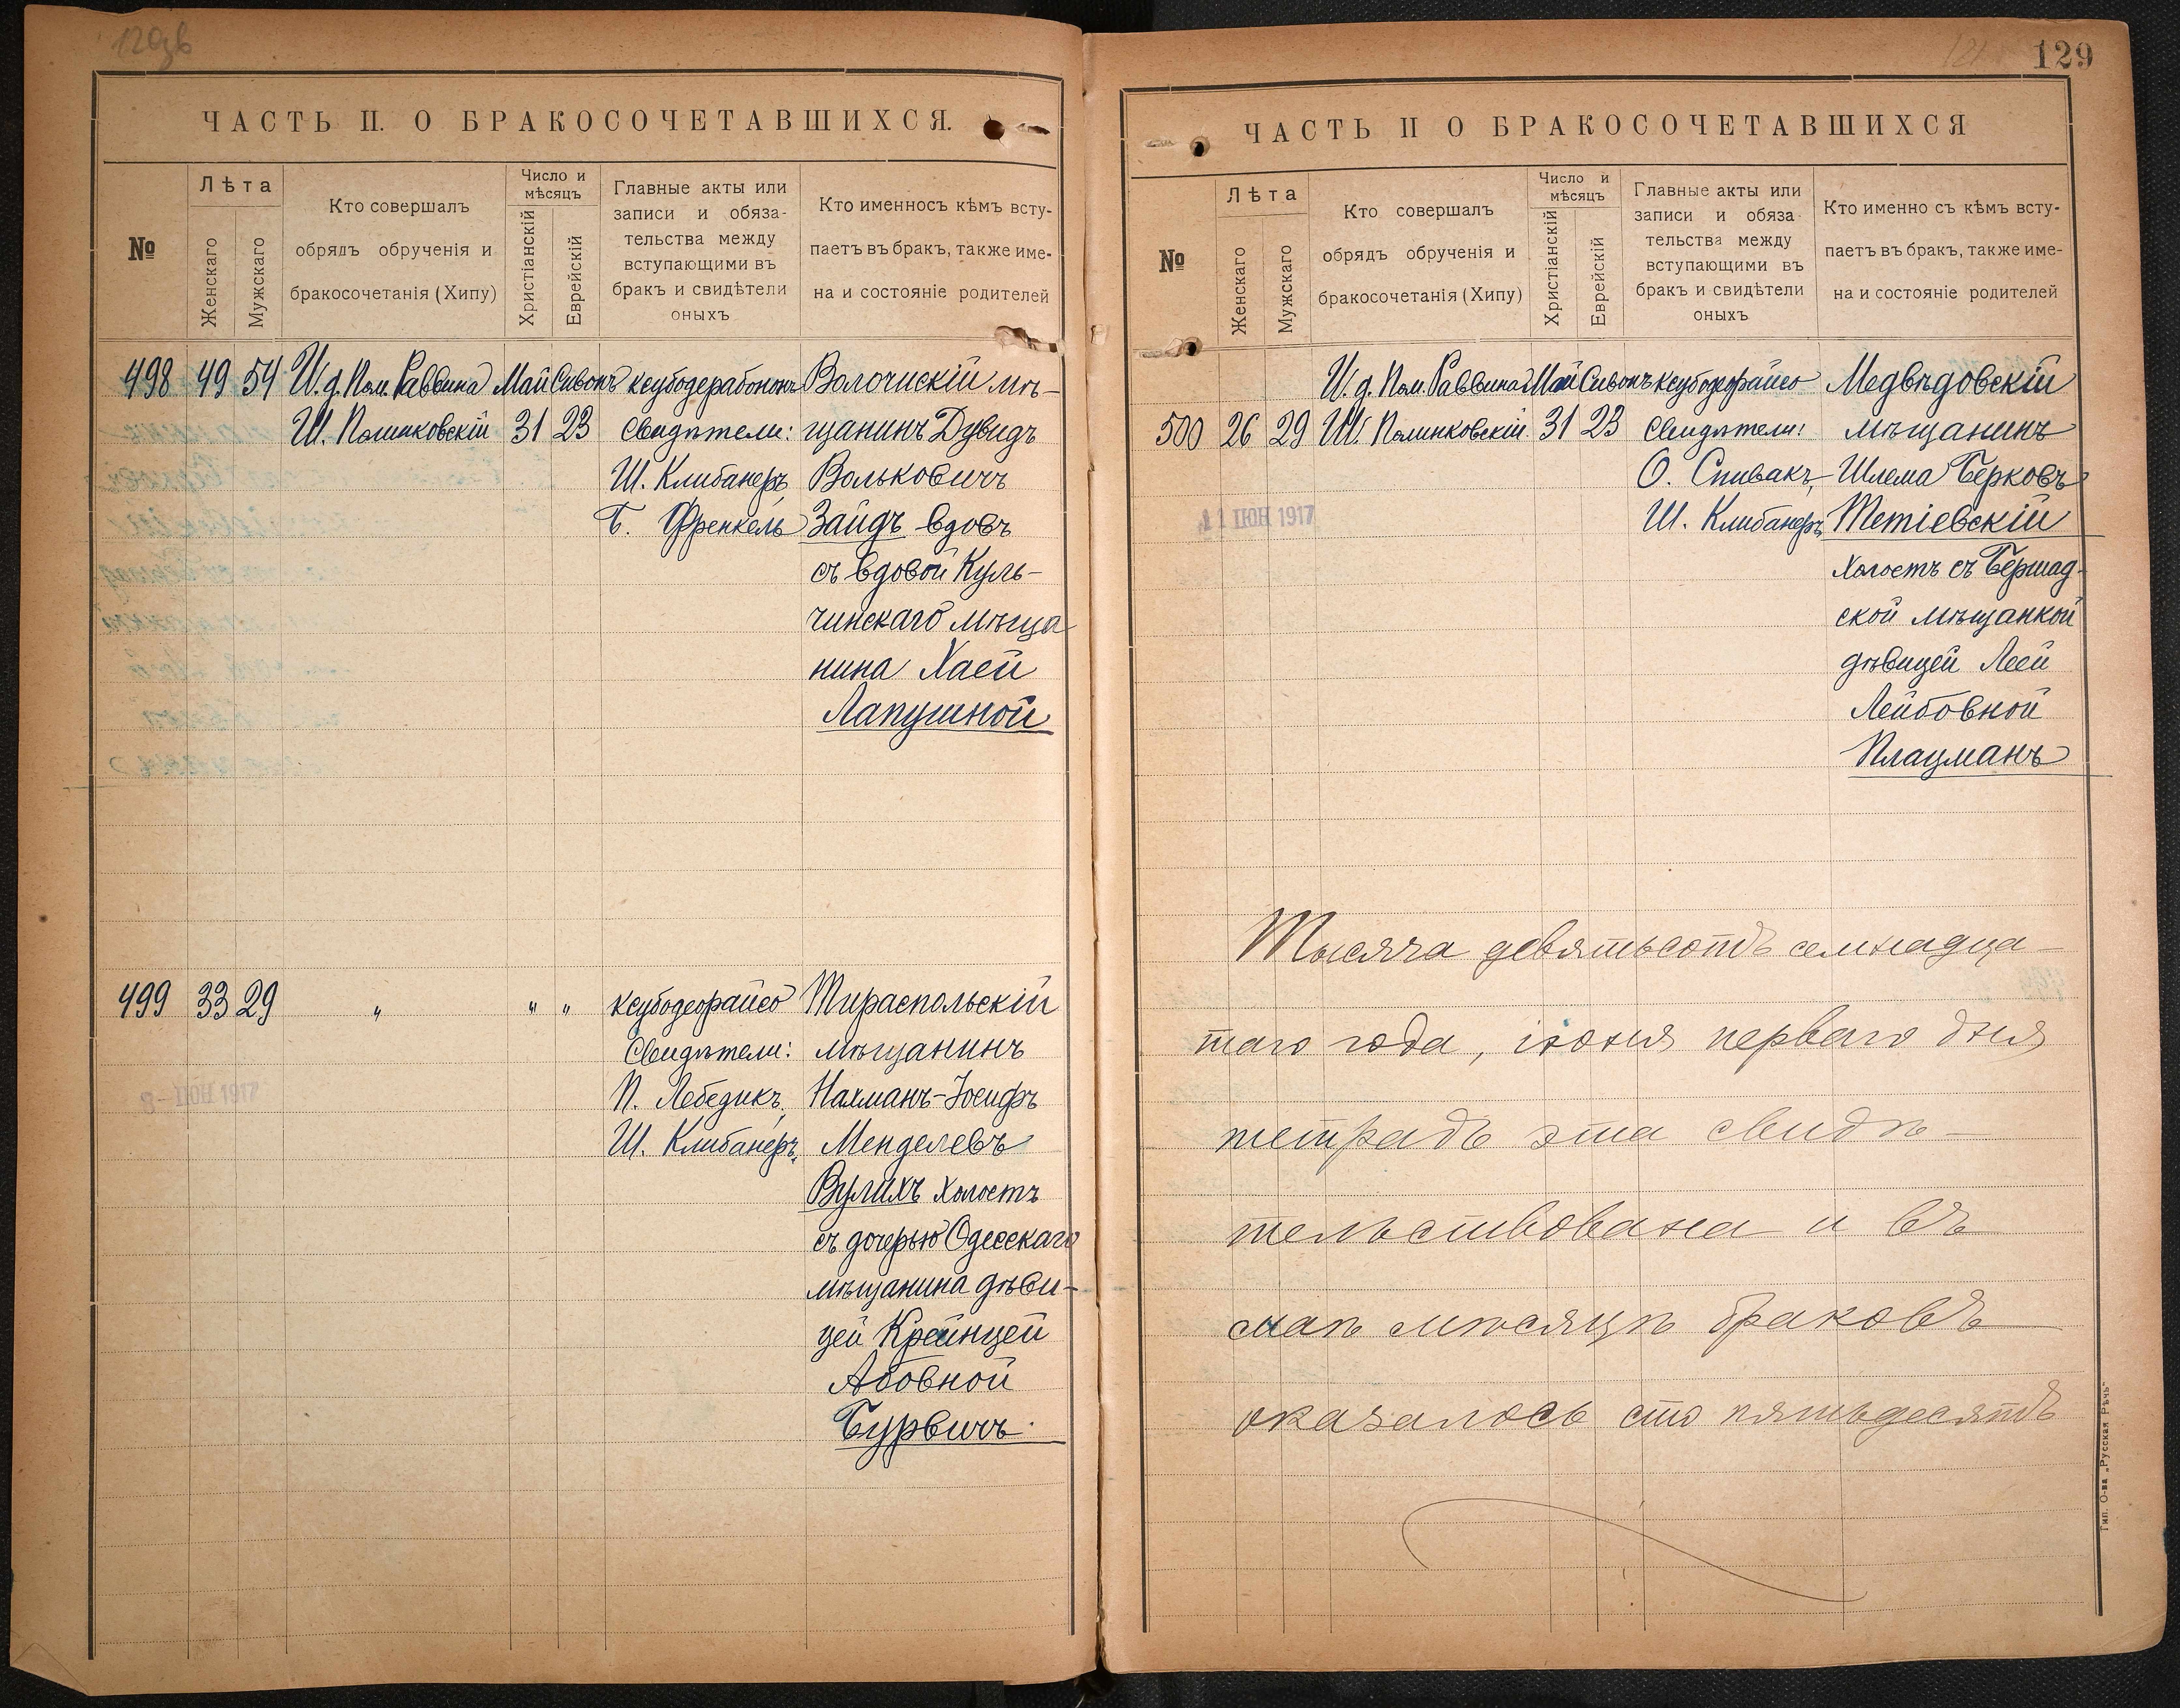 ЧАСТЬ II. О БРАКОСОЧЕТАВШИХСЯ.
№
Лѣта
Женскаго
Мужскаго
Кто совершалъ
обрядъ обрученія и
бракосочетанія (Хипу)
Число и
мѣсяцъ
Христіанскій
Еврейскій
Главные акты или
записи и обяза-
тельства между
вступающими въ
бракъ и свидѣтели
оныхъ
Кто именносъ кѣмъ всту-
паетъ въ бракъ, также име-
на и состояніе родителей
498 49 54 И.д. Пом. Раввина Май Сивонъ ксубодерабононъ Волочискій мѣ-
Ш. Полинковскій 31 23 Свидѣтели: щанинъ Дувидъ
Ш. Клибанеръ, Вольковичъ
Б. Френкель Зайдъ вдовъ
съ вдовой Куль-
чинскаго мѣща
нина Хаей
Лапушной
499 33 29 " " " ксубодеорайсо Тираспольскій
Свидѣтели: мѣщанинъ
П. Лебедикъ, Нахманъ-Іосифъ
8 - ІЮН 1917
Ш. Клибанеръ, Менделевъ
Вулихъ холостъ
съ дочерью Одесскаго
мѣщанина дѣви-
цей Крейнцей
Абовной
Бурвичъ.
129
ЧАСТЬ II О БРАКОСОЧЕТАВШИХСЯ
№
Лѣта
Женскаго
Мужскаго
Кто совершалъ
обрядъ обрученія и
бракосочетанія (Хипу)
Число и
мѣсяцъ
Христіанскій
Еврейскій
Главные акты или
записи и обяза
тельства между
вступающими въ
бракъ и свидѣтели
оныхъ
Кто именно съ кѣмъ всту-
паетъ въ бракъ, также име-
на и состояніе родителей
И.д. Пом. Раввина Май Сивонъ ксубодеорайсо Медвѣдовскій
500 26 29 Ш. Полинковскій. 31 23 Свидѣтели: мѣщанинъ
О. Спивакъ, Шлема Берковъ
11 ІЮН 1917
Ш. Клибанеръ, Тетіевскій
холостъ съ Бершад-
ской мѣщанкой
дѣвицей Леей
Лейбовной
Плацманъ
Тысяча девятьсотъ семнадца-
таго года, іюня перваго дня
тетрадь эта свидѣ-
тельствована и въ
маѣ мѣсяцѣ браковъ
оказалось сто пятьдесятъ
Тип. О-ва „Русская Рѣчь"